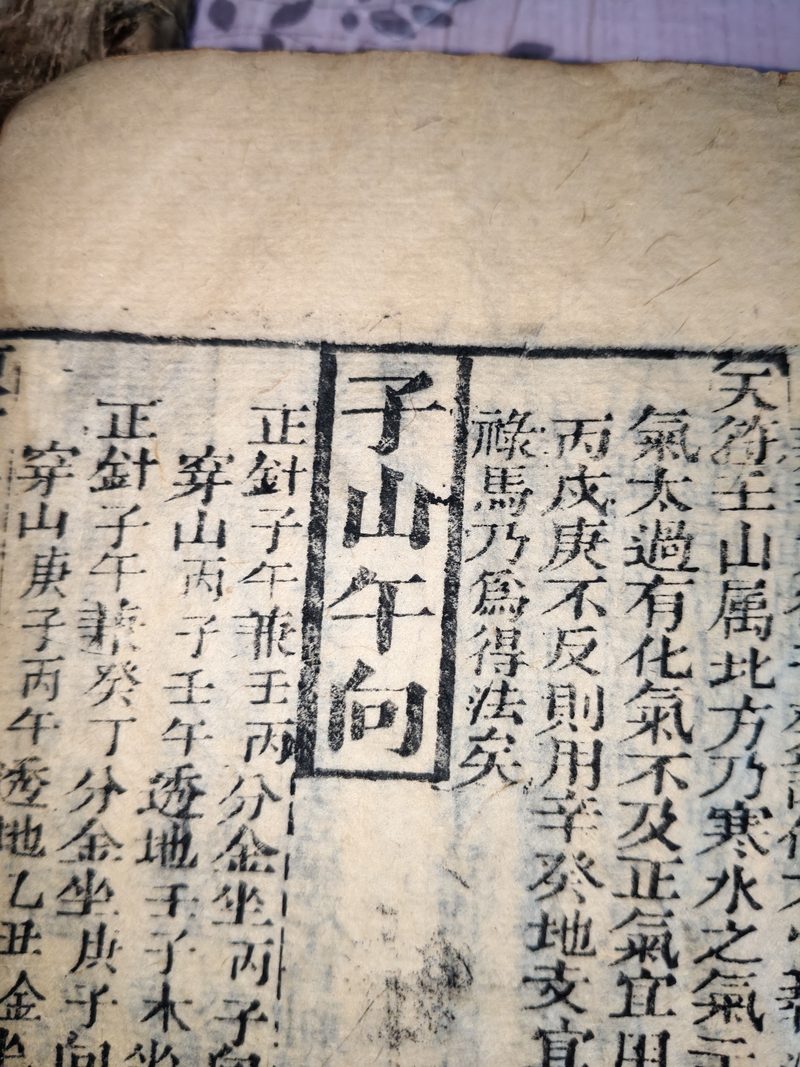 天符壬山属北方乃寒水之氣
氣太過有化氣不及正氣宜用
丙戍庚不反則用辛癸地支宜
祿馬乃爲得法矣
子山午向
正針子午兼壬丙分金坐丙子向
穿山丙子壬午透地壬子木坐
正針子午兼癸丁分金坐庚子向
穿山庚子丙午透地乙丑金坐